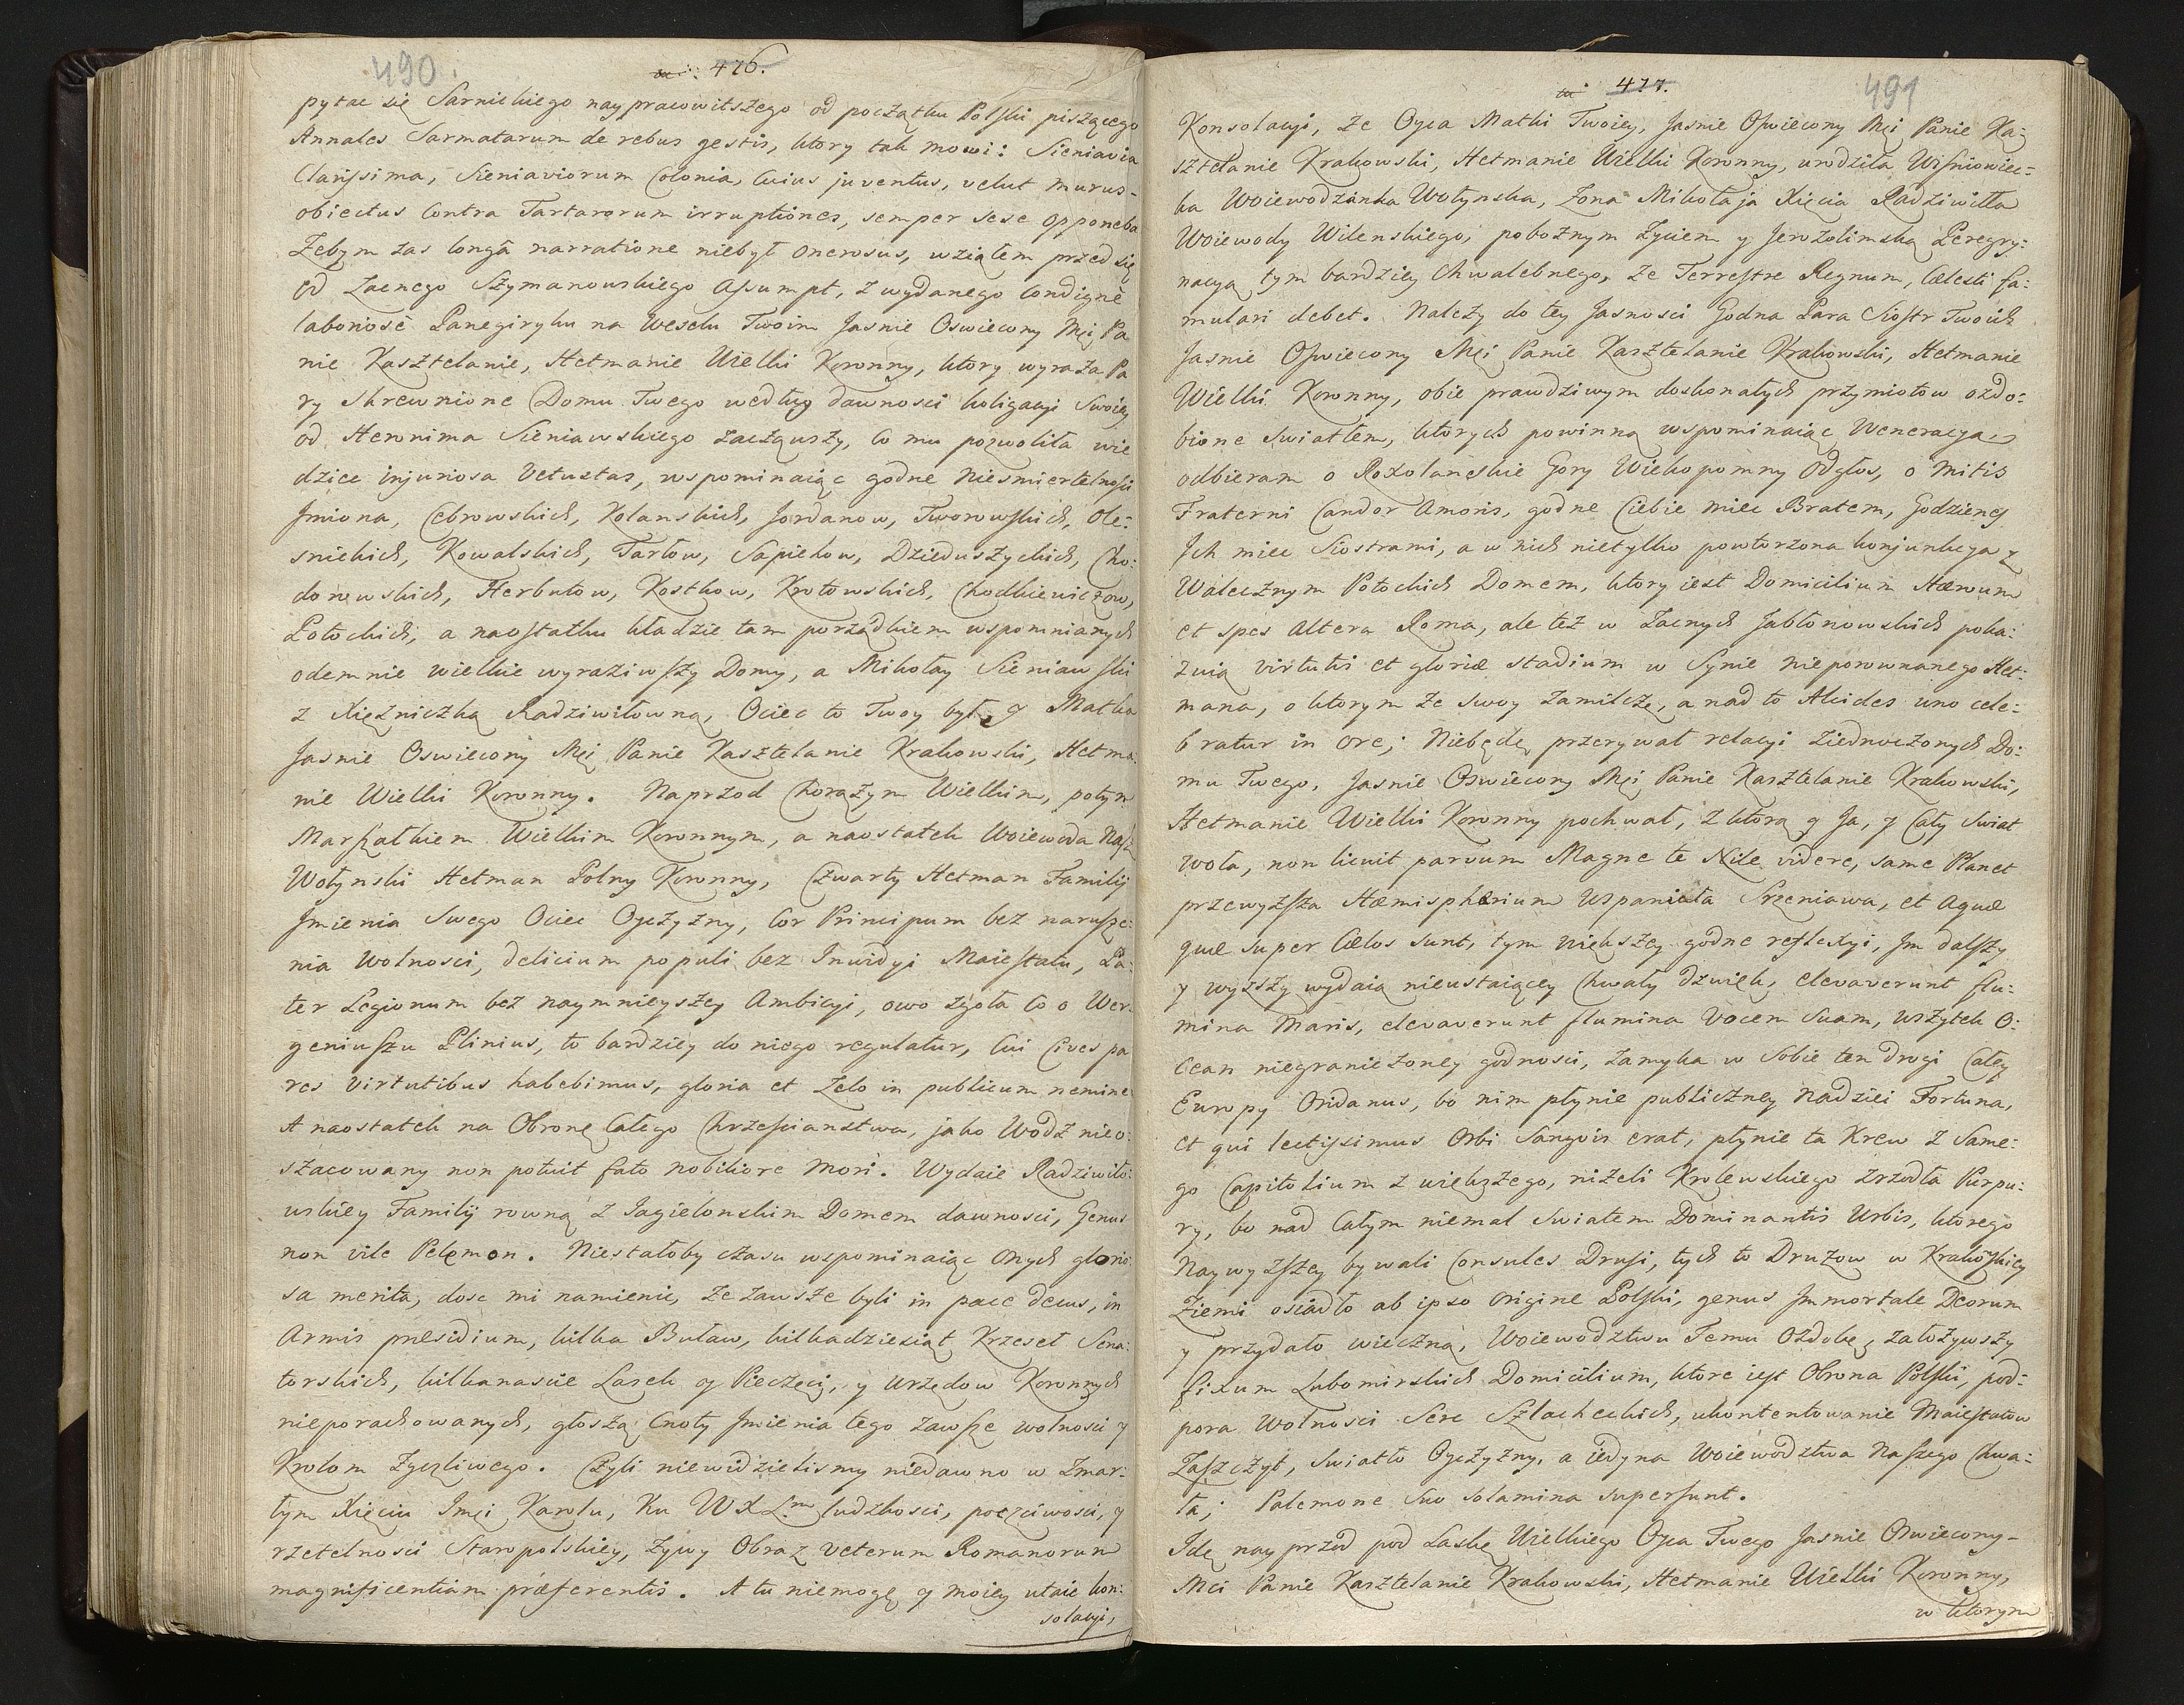 490.
476.
pytać się Sarnickiego naypracowitszego od początku Polski piszącego
Annales Sarmatarum de rebus gestis, ktory tak mowi: Sieniavia
Clarissima, Sieniaviorum Colonia, Cuius juventus, velut murus-
obiectus Contra Tartarorum irruptiones, semper sese opponeba
Żebym zas longâ narratione niebył onerosus, wziąłem przed się
od Zacnego Szymanowskiego Assumpt, z wydanego Condignè
laboriosè Panegiryku na Weselu Twoim Jasnie Oswiecony Mći Pa
nie Kasztelanie, Hetmanie Wielki Koronny, ktory wyraża Pa
ry skrewnione Domu Twego według dawnosci koligacyi Swoiey
od Heronima Sieniawskiego zacząwszy, Co mu pozwoliła wie
dziec injuriosa Vetustas, wspominaiąc godne Niesmiertelnosci
Jmiona, Cebrowskich, Kolanskich, Jordanow, Tworowskich, Ole:
snickich, Kowalskich, Tarłow, Sapiehow, Dzieduszyckich, Cho:
dorowskich, Herbutow, Kostkow, Krotowskich, Chodkiewiczow,
Potockich, a naostatku kładzie tam porządkiem wspomnianych
odemnie wielkie wyraziwszy Domy, a Mikołay Sieniawski
z Xiężniczką Radziwiłowną, Ociec to Twoy był y Matka
Jasnie Oswiecony Mći Panie Kasztelanie Krakowski, Hetma:
nie Wielki Koronny. Naprzod Chorążym Wielkim, potym
Marszałkiem Wielkim Koronnym, a naostatek Woiewoda Nasz
Wołynski Hetman Polny Koronny, Czwarty Hetman Familij
Jmienia Swego Ociec Oyczyzny, Cor Principum bez narusze:
nia Wolnosci, delicium populi bez Inwidyi Maiestatu, Pa:
ter Legionum bez naymnieyszey Ambicyi, owo zgoła Co o Wer:
geniuszu Plinius, to bardziey do niego regulatur, Cui Cives pa
res Virtutibus habebimus, gloria et Zelo in publicum nemine
A naostatek na Obronę Całego Chrzescianstwa, jako Wodz nieo:
szacowany non potuit fato nobiliore Mori. Wydaie Radziwiło:
wskiey Familij rowną z Jagielonskim Domem dawnosci, Genus
non vile Pelemon. Niestałoby czasu wspominaiąc Onych glorio:
sa merita, dosc mi namienic, że zawsze byli in pace decus, in
Armis præsidium, kilka Buław, kilkadziesiąt Krzeseł Sena:
torskich, kilkanascie Lasek y Pieczęci, y Urzędow Koronnych
nieporachowanych, głoszą Cnoty Jmienia tego zawsze wolnosci y
Krolom Życzliwego. Czyli niewidzielismy niedawno w Zmar:
łym Xięciu Jmći Karolu, Ku WXLmu ludzkosci, poczciwosci, y
rzetelnosci Staropolskiey, żywy Obraz Veterum Romanorum
magnificentiam præferentis. A tu niemogę y moiey utaić kon:
solacyi,
491
477.
Konsolacyi, że Oyca Matki Twoiey, Jasnie Oswiecony Mći Panie Ka:
sztelanie Krakowski, Hetmanie Wielki Koronny, urodziła Wisniowiec=
ka Woiewodzanka Wołynska, Żona Mikołaja Xięcia Radziwiłła
Woiewody Wilenskiego, pobożnym życiem y Jerozolimską Peregry:
nacyą tym bardziey Chwalebnego, że Terrestre Regnum, Cælesti fa:
mulari debet. Należy do tey Jasnosci Godna Para Siostr Twoich
Jasnie Oswiecony Mći Panie Kasztelanie Krakowski, Hetmanie
Wielki Koronny, obie prawdziwym doskonałych przymiotow ozdo:
bione Swiatłem, których powinną wspominaiąc Weneracyą
odbieram o Roxolanskie Gory Wiekopomny Odgłos, o Mitis
Fraterni Candor Amoris, godne Ciebie miec Bratem, Godzieneś
Ich miec Siostrami, a w nich nietylko powtorzona konjunkcya z
Walecznym Potockich Domem, ktory iest Domicilium Hæroum
et spes Altera Roma, ale też w Zacnych Jabłonowskich poka:
zuią virtutis et gloriæ stadium w Synie nieporownanego Het:
mana, o ktorym że swoy zamilczę, a nad to Alcides uno cele:
bratur in ore; Niebędę przerywał relacyi Ziednoczonych Do:
mu Twego, Jasnie Oswiecony Mći Panie Kasztelanie Krakowski,
Hetmanie Wielki Koronny pochwał, z ktorą y Ja, y Cały Swiat
woła, non licuit parvum Magne te Nile videre, same Planet
przewyższa Hæmisphærium Wspaniała Srzeniawa, et Aquæ
quæ super Cælos sunt, tym większey godne reflexyi, Im dalszy
y wyższy wydaią nieustaiącey Chwały dzwięk, elevaverunt flu:
mina Maris, elevaverunt flumina Vocem Suam, wszytek O:
cean niegraniczoney godnosci, zamyka w Sobie ten drogi Całey
Europy Oridanus, bo nim płynie publiczney Nadziei Fortuna,
et qui lectissimus Orbi Sangvis erat, płynie ta Krew z Same:
go Capitolium z większego, niżeli Krolewskiego zrzodła Purpu:
ry, bo nad Całym niemal Swiatem Dominantis Urbis, ktorego
Naywyższey bywali Consules Drusi, tych to Druzow w Krakowskiey
Ziemi osiadło ab ipso Origine Polski, genus Immortale Deorum
y przydało wieczną, Woiewodztwu Temu Ozdobę, założywszy
fixum Lubomirskich Domicilium, ktore iest Obrona Polski, pod=
pora Wolnosci Serc Szlacheckich, ukontentowanie Maiestatow
Zaszczyt, Swiatło Oyczyzny, a iedyna Woiewodztwa Naszego Chwa:
ła; Palemone Suo solamina supersunt.
Idę nayprzod pod Laskę Wielkiego Oyca Twego Jasnie Oswiecony-
Mći Panie Kasztelanie Krakowski, Hetmanie Wielki Koronny,
w ktorym